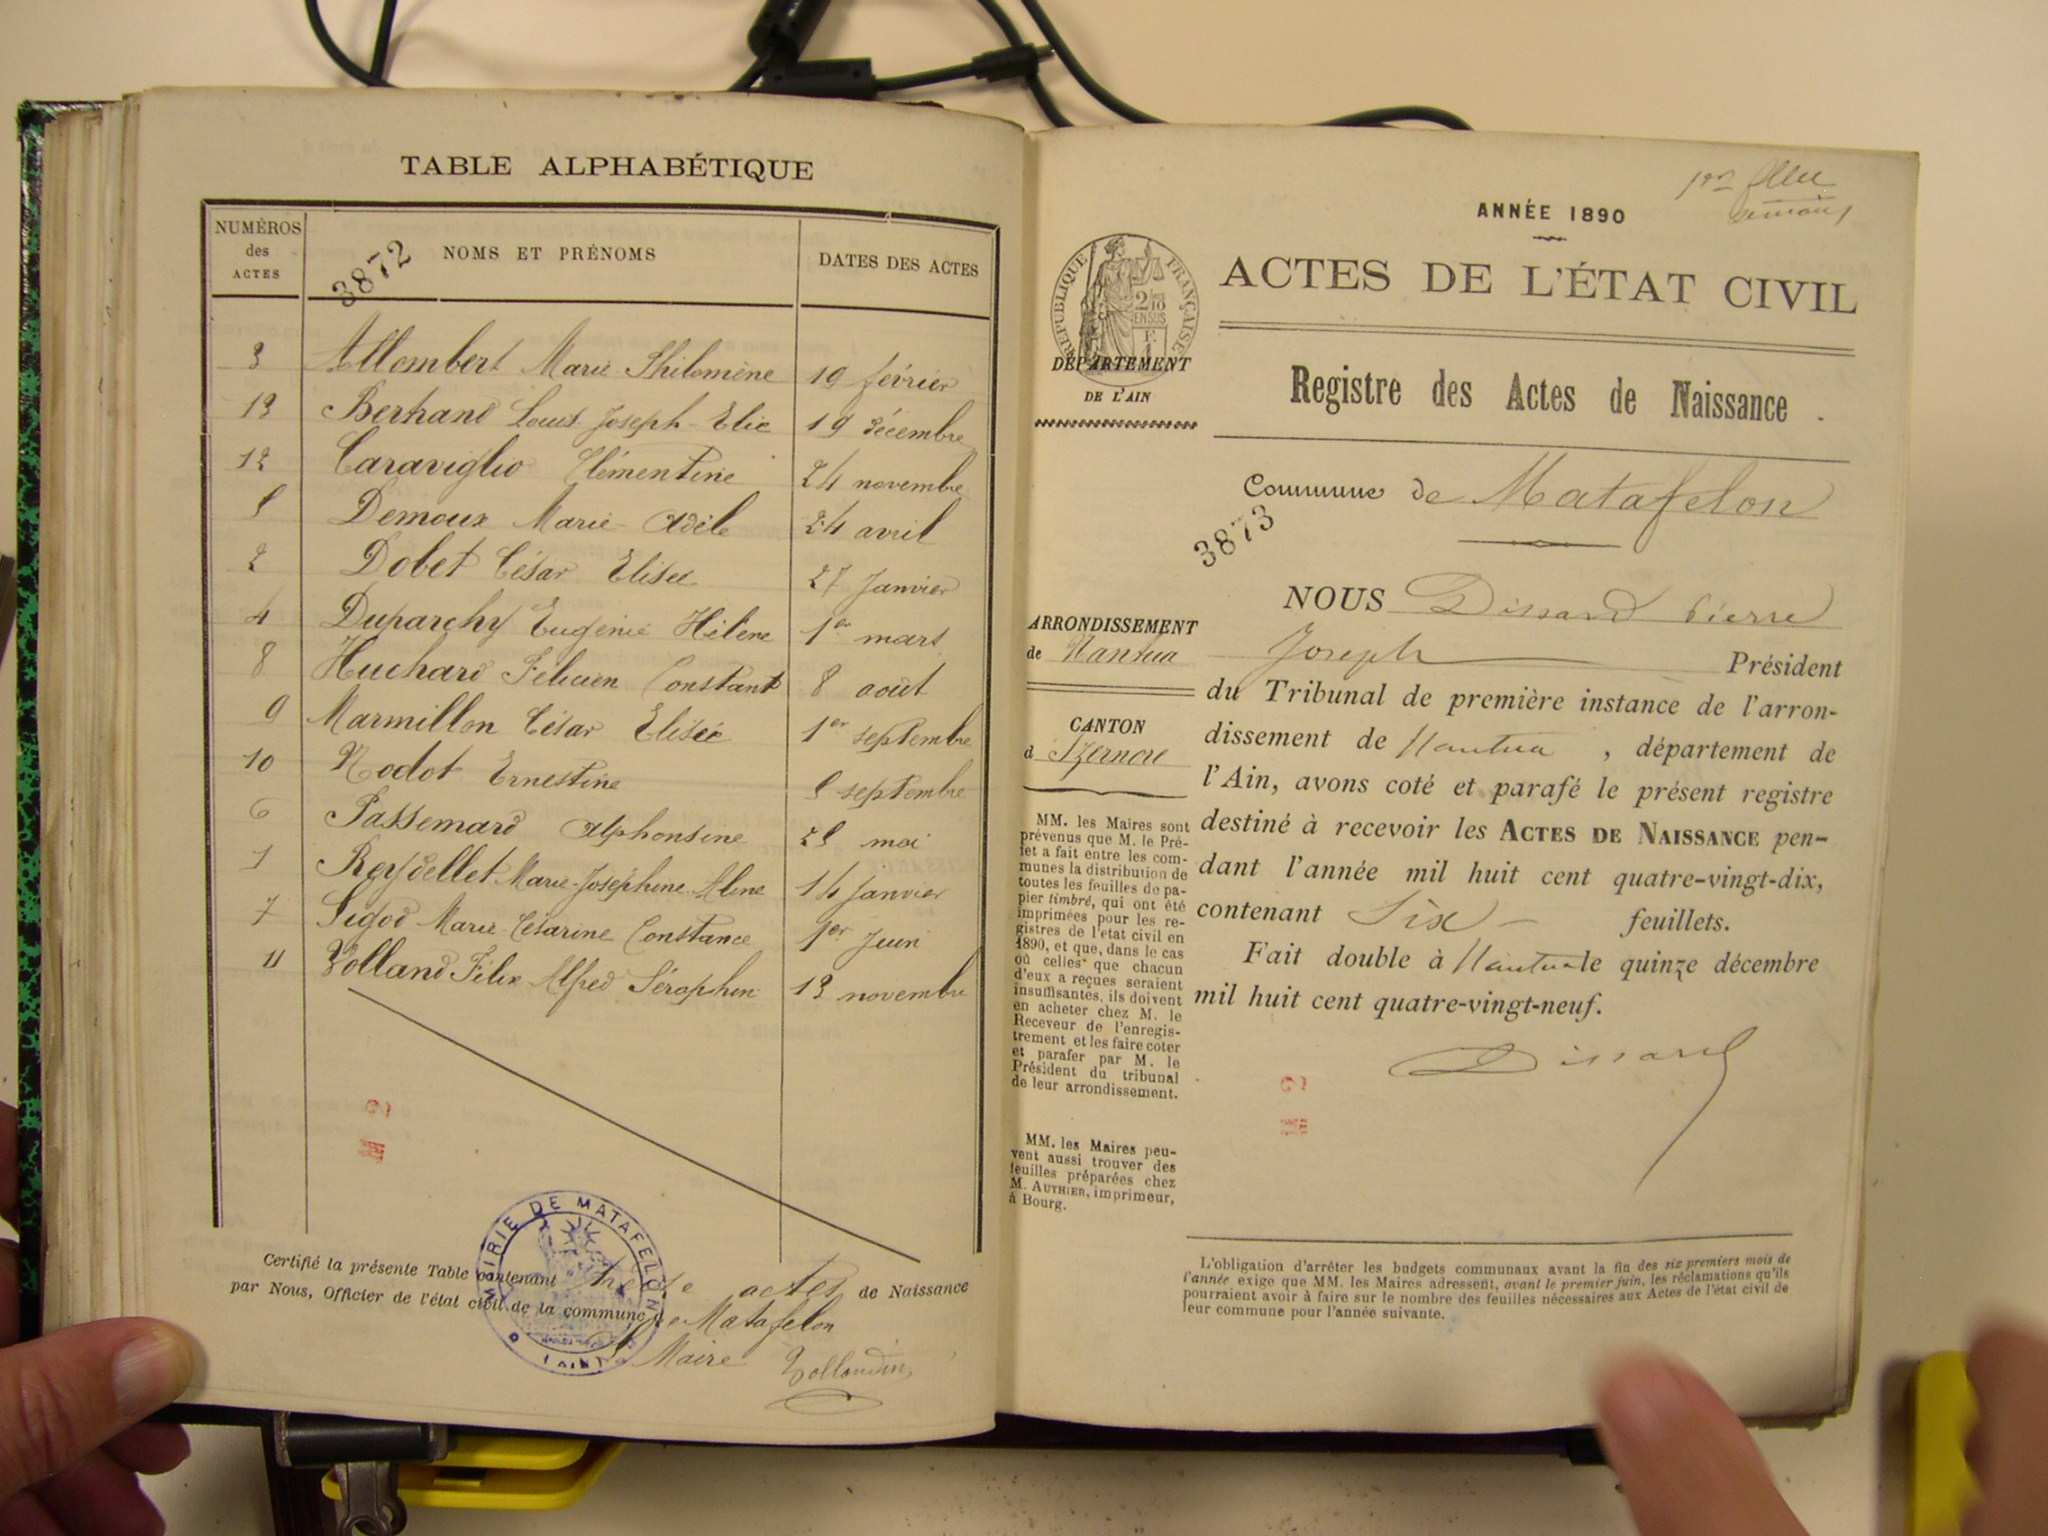 TABLE ALPHABÉTIQUE
NUMÉROS des ACTES
NOMS ET PRÉNOMS
DATES DES ACTES
3872
3 Allombert Marie Philomène 19 février
13 Bertrand Louis Joseph Elie 19 décembre
12 Caraviglio Clémentine 24 novembre
5 Demoux Marie Adèle 24 avril
2 Dobet César Elisée 27 Janvier
4 Duparchy Eugénie Hélène 1er mars
8 Huchard Félicien Constant 8 août
9 Marmillon César Elisée 1er septembre
10 Nodot Ernestine 5 septembre
6 Passemard Alphonsine 25 mai
1 Reydellet Marie-Joséphine Aline 14 Janvier
7 Sigod Marie Césarine Constance 1er Juin
11 Volland Félix Alfred Séraphin 13 novembre
Certifié la présente Table contenant treize actes de Naissance
par Nous, Officier de l'état civil de la commune de Matafelon
Maire
MAIRIE DE MATAFELON
(AIN)
1er
ANNÉE 1890
ACTES DE L'ÉTAT CIVIL
RÉPUBLIQUE FRANÇAISE
DÉPARTEMENT
DE L'AIN
Registre des Actes de Naissance
Commune de Matafelon
3873
ARRONDISSEMENT
de Nantua
CANTON
d'Izernore
MM. les Maires sont
prévenus que M. le Pré-
fet a fait entre les com-
munes la distribution de
toutes les feuilles de pa-
pier timbré, qui ont été
imprimées pour les re-
gistres de l'état civil en
1890, et que, dans le cas
où celles que chacun
d'eux a reçues seraient
insuffisantes, ils doivent
en acheter chez M. le
Receveur de l'enregis-
trement et les faire coter
et parafer par M. le
Président du tribunal
de leur arrondissement.
MM. les Maires peu-
vent aussi trouver des
feuilles préparées chez
M. AUTHIER, imprimeur,
à Bourg.
NOUS Dissard Pierre
Joseph Président
du Tribunal de première instance de l'arron-
dissement de Nantua, département de
l'Ain, avons coté et parafé le présent registre
destiné à recevoir les ACTES DE NAISSANCE pen-
dant l'année mil huit cent quatre-vingt-dix,
contenant Six feuillets.
Fait double à Nantua le quinze décembre
mil huit cent quatre-vingt-neuf.
Dissard
L'obligation d'arrêter les budgets communaux avant la fin des six premiers mois de
l'année exige que MM. les Maires adressent, avant le premier juin, les réclamations qu'ils
pourraient avoir à faire sur le nombre des feuilles nécessaires aux Actes de l'état civil de
leur commune pour l'année suivante.